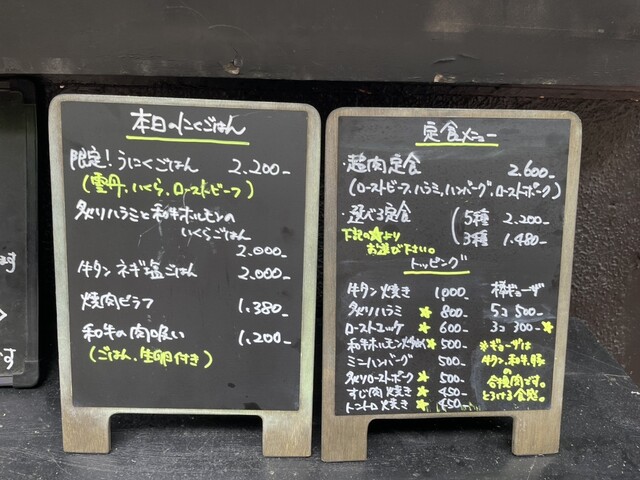 本日のにくごはん
限定!うにくごはん 2.200-
(雲丹、いくら、ローストビーフ)
炙りハラミと和牛ホルモンの
いくらごはん
2.000-
牛タン ネギ塩ごはん 2.000-
焼肉ピラフ 1.380-
和牛の肉吸い 1.200-
(ごはん、生卵付き)
定食メニュー
・超肉定食 2.600-
(ローストビーフ、ハラミ、ハンバーグ、ローストポーク)
・選べる定食 5種 2.200-
3種 1.480-
下記の★より
お選び下さい。
トッピング
牛タン焼き 1000-
炙りハラミ ★ 800-
ローストユッケ ★ 600-
和牛ホルモン炒め ★ 500-
ミニハンバーグ 500-
炙りローストポーク ★ 500-
すじ肉焼き ★ 450-
トントロ焼き ★ 450-
棒ギョーザ
5コ 500-
3コ 300-★
※ギョーザは
牛タン、和牛、豚
の
合挽肉です。
とろける食感。
ます
です